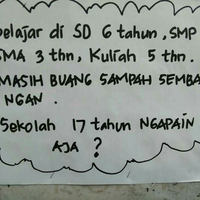 belajar di SD 6 tahun, SMP
SMA 3 thn, Kuliah 5 thn.
MASIH BUANG SAMPAH SEMBA
NGAN.
Sekolah 17 tahun NGAPAIN
AJA ?